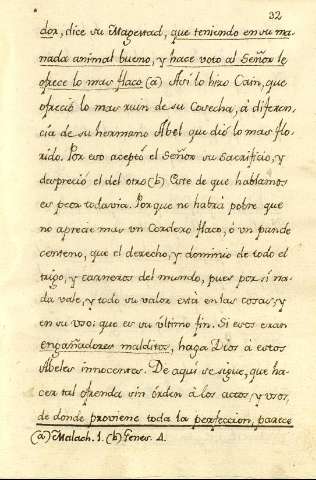 32
dor, dice su Magestad, que teniendo en su ma-
nada animal bueno, y hace voto al Señor le
ofrece lo mas flaco (a) Asi lo hizo Cain, que
ofreció lo mas ruin de su Cosecha, á diferen-
cia de su hermano Abel que dió lo mas flo-
rido. Por eso aceptó el Señor su Sacrificio, y
despreció el del otro (b) Este de que hablamos
es peor todavia. Porque no habrá pobre que
no aprecie mas un Cordero flaco, ó un pan de
centeno, que el derecho, y dominio de todo el
trigo, y carneros del mundo, pues por sí na-
da vale, y todo su valor está en las cosas, y
en su uso: que es su último fin. Si esos eran
engañadores malditos, haga Dios á estos
Abeles innocentes. De aqui se sigue, que ha-
cer tal ofrenda sin órden á los actos, y usos,
de donde proviene toda la perfeccion, parece
(a) Malach. 1. (b) Genes. 4.